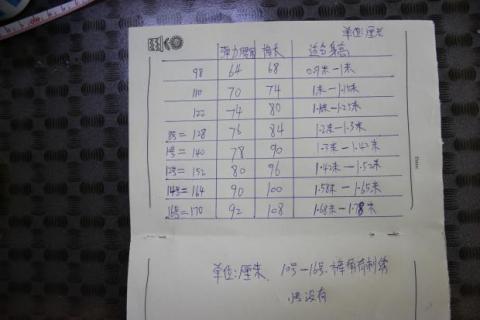 单位:厘米
弹力腰围 裤长 适合身高
98 64 68 0.9米-1米
110 70 74 1米-1.1米
122 74 80 1.1米-1.25米
128 76 84 1.2米-1.3米
=140 78 90 1.3米-1.42米
=152 80 96 1.42米-1.52米
14号=164 90 100 1.58米-1.65米
16号=170 92 108 1.68米-1.78米
单位:厘米 10号-16号
没有